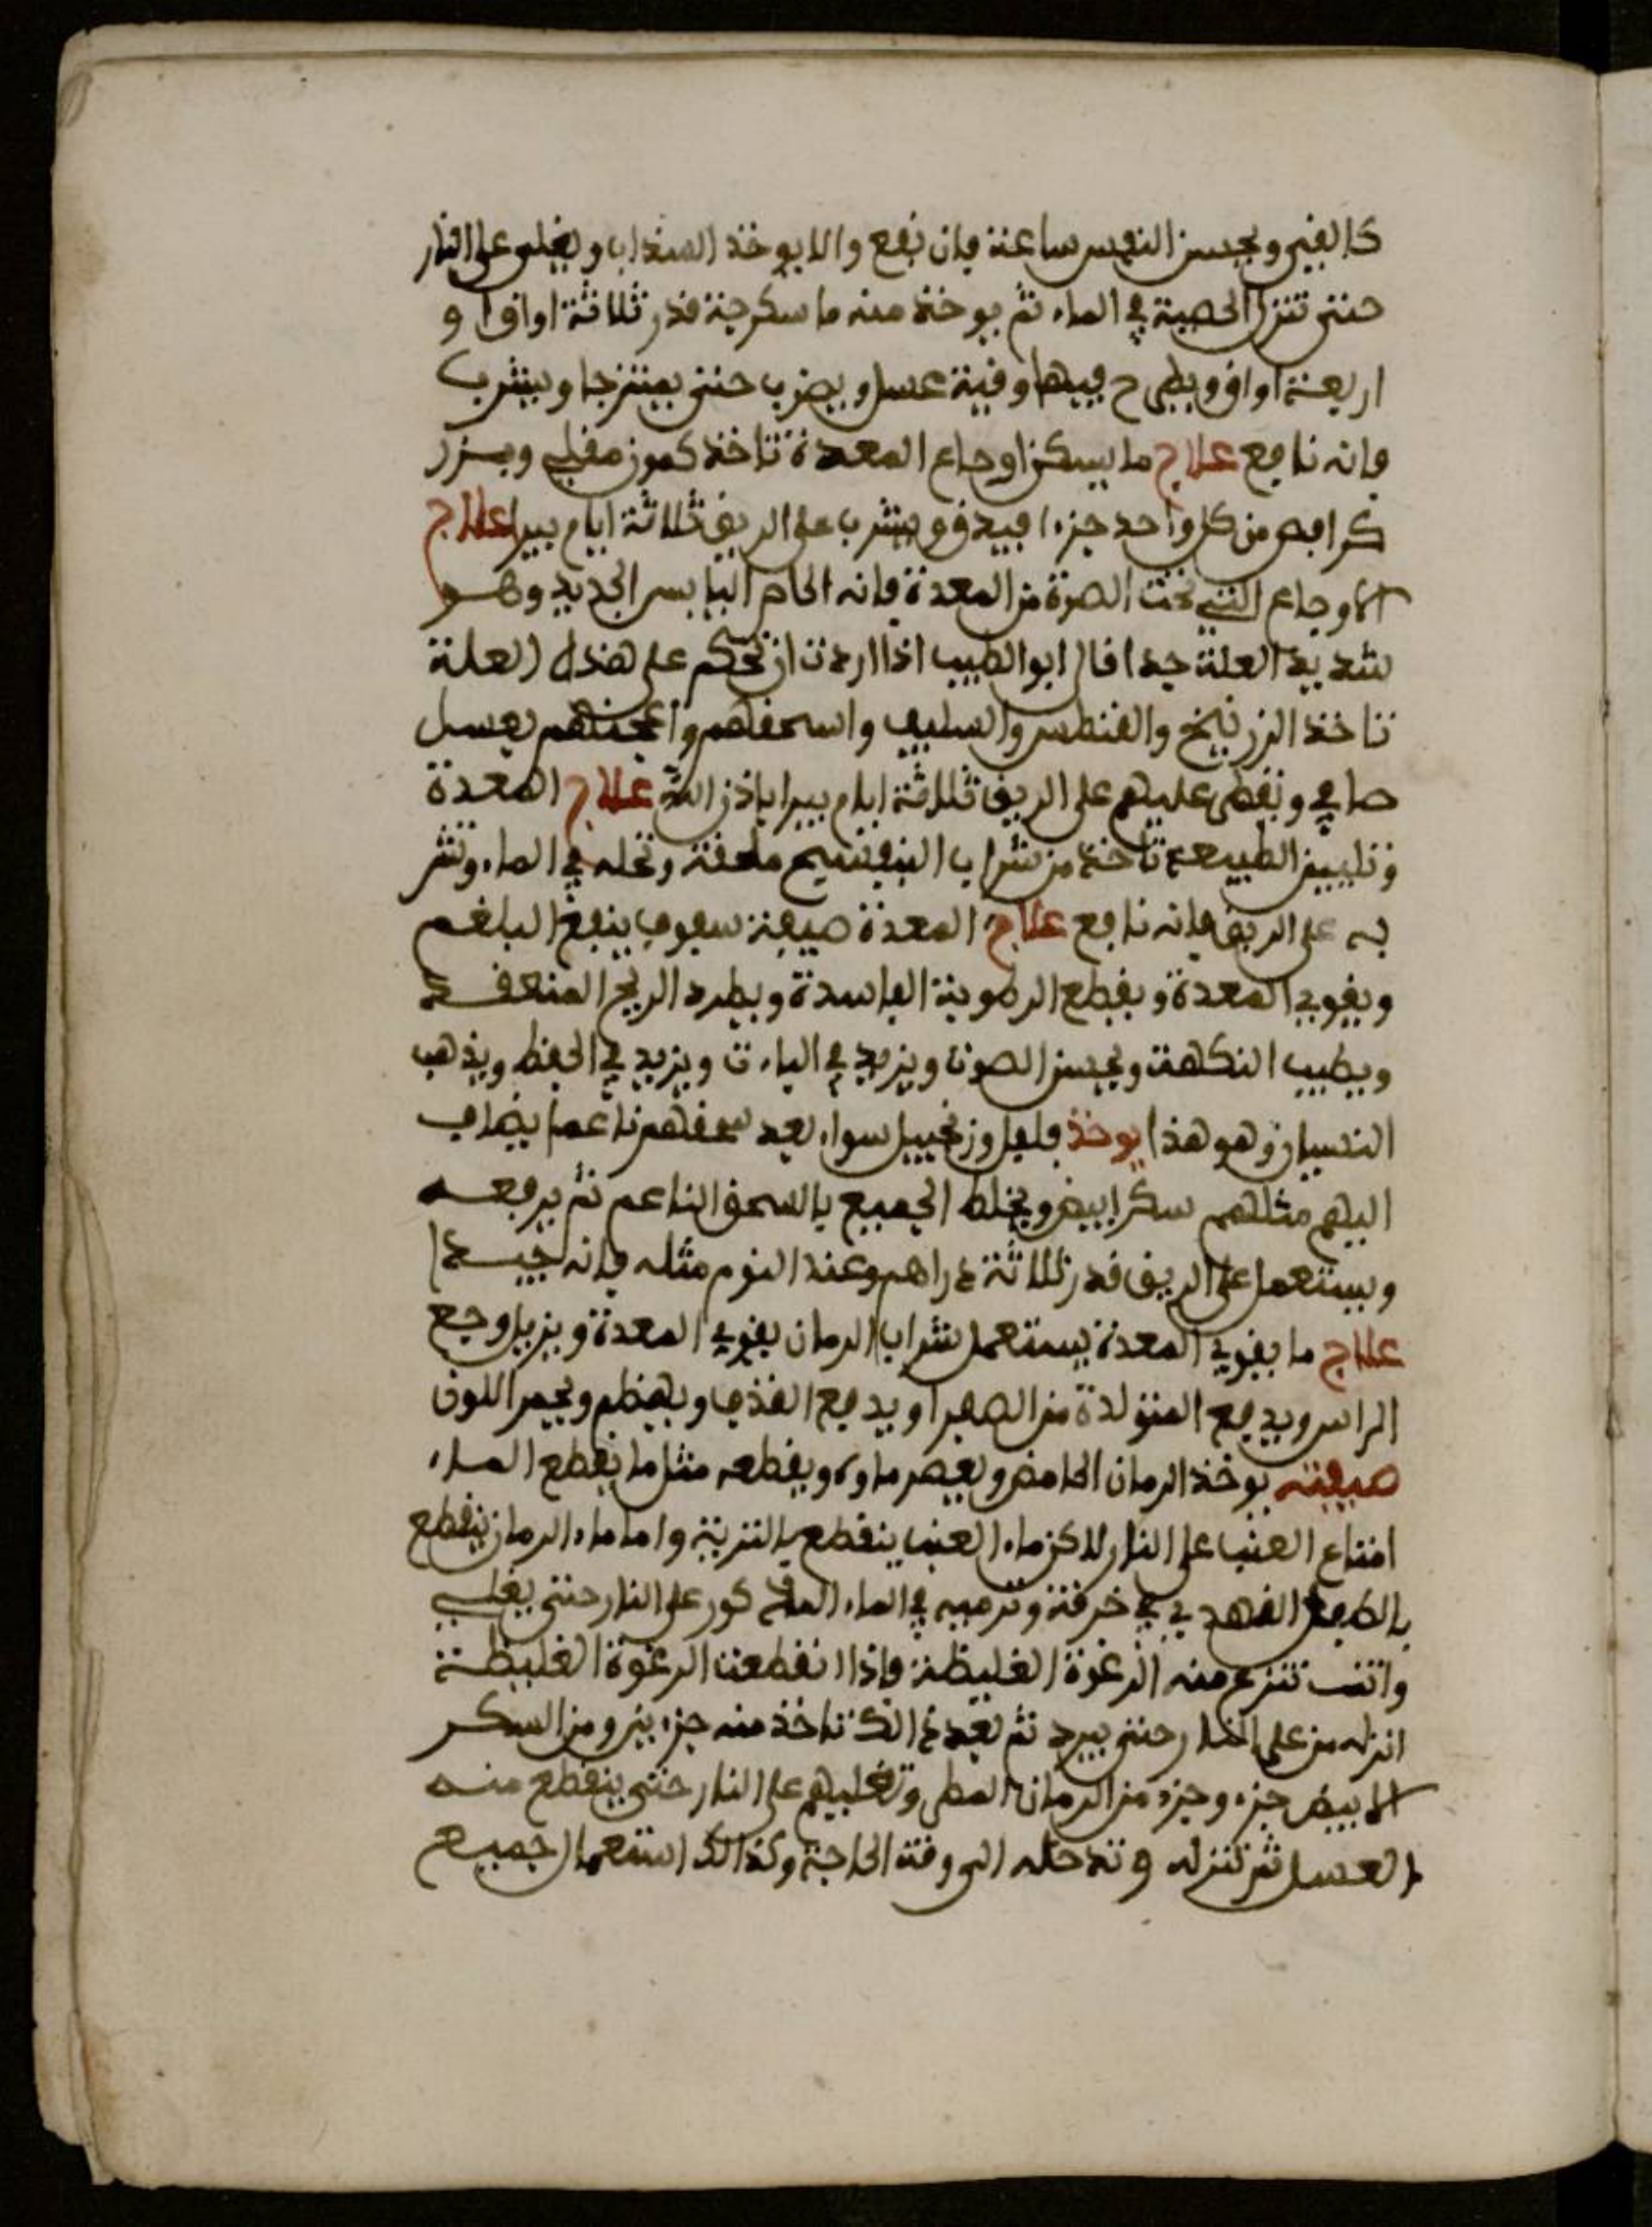 كالفي ويحبس النفس ساعة فان نفع والا يوخذ السنداب ويغلي على النار
حتى تنزل الخصية في الماء ثم يوخذ منه ما سكرجة قدر ثلاثة اواق او
اربعة اواق ويطرح فيها وقية عسل ويضرب حتى يمتزجا ويشرب
فانه نافع علاج ما يسكن اوجاع المعدة تاخذ كمون مقلي وبزر
كرافص من كل واحد جزءا فيدق ويشرب على الريق ثلاثة ايام يبرا علاج
الاوجاع التي تحت الصرة من المعدة فانه الخام اليابس الجديد وهو
شديد العلة جدا قال ابو الطيب اذا اردت ان تحكم على هذه العلة
تاخذ الزرنيخ والقنطس والسليف واسحقهم واعجنهم بعسل
صافي وتفطر عليهم على الريق ثلاثة ايام يبرا باذن الله علاج المعدة
وتليين الطبيعة تاخذ من شراب البنفسج ملعقة وتحله في الماء وتشر
به على الريق فانه نافع علاج المعدة صيفة سفوف ينفع البلغم
ويقوي المعدة ويقطع الرطوبة الفاسدة ويطرد الريح المنعقدة
ويطيب النكهة ويحسن الصوت ويزيد في الباءت ويزيد في الحفظ ويذهب
النسيان وهو هذا يوخذ فلفل وزنجبيل سواء بعد سحقهم ناعما يضاف
اليهم مثلهم سكر ابيض ويخلط الجميع بالسحق الناعم ثم يرفعه
ويستعمل على الريق قدر ثلاثة دراهم وعند النوم مثله فانه جيدا
علاج ما يقوي المعدة يستعمل شراب الرمان يقوي المعدة ويزيل وجع
الراس ويدفع المتولدة من الصفرا ويدفع القذف ويهظم ويحمر اللون
صيفته يوخذ الرمان الحامض ويعصر ماوه ويقطعه مثل ما يقطع الماء
امتاع العنب على النار لاكن ماء العنب ينقطع بالتربة واما ماء الرمان ينقطع
بالطفل الفهدي في خرقة وترميه في الماء المذكور على النار حتى يغلي
وانت تنزع منه الرغوة الغليظة فاذا انقطعت الرغوة الغليظة
انزله من على النار حتى يبرد ثم بعد ذالك تاخذ منه جزءين ومن السكر
الابيض جزء وجزء من الرمان المطي وتغليهم على النار حتى ينقطع منه
العسل ثم تنزله وتدخله الى وقت الحاجة وكذالك استعمال جميع